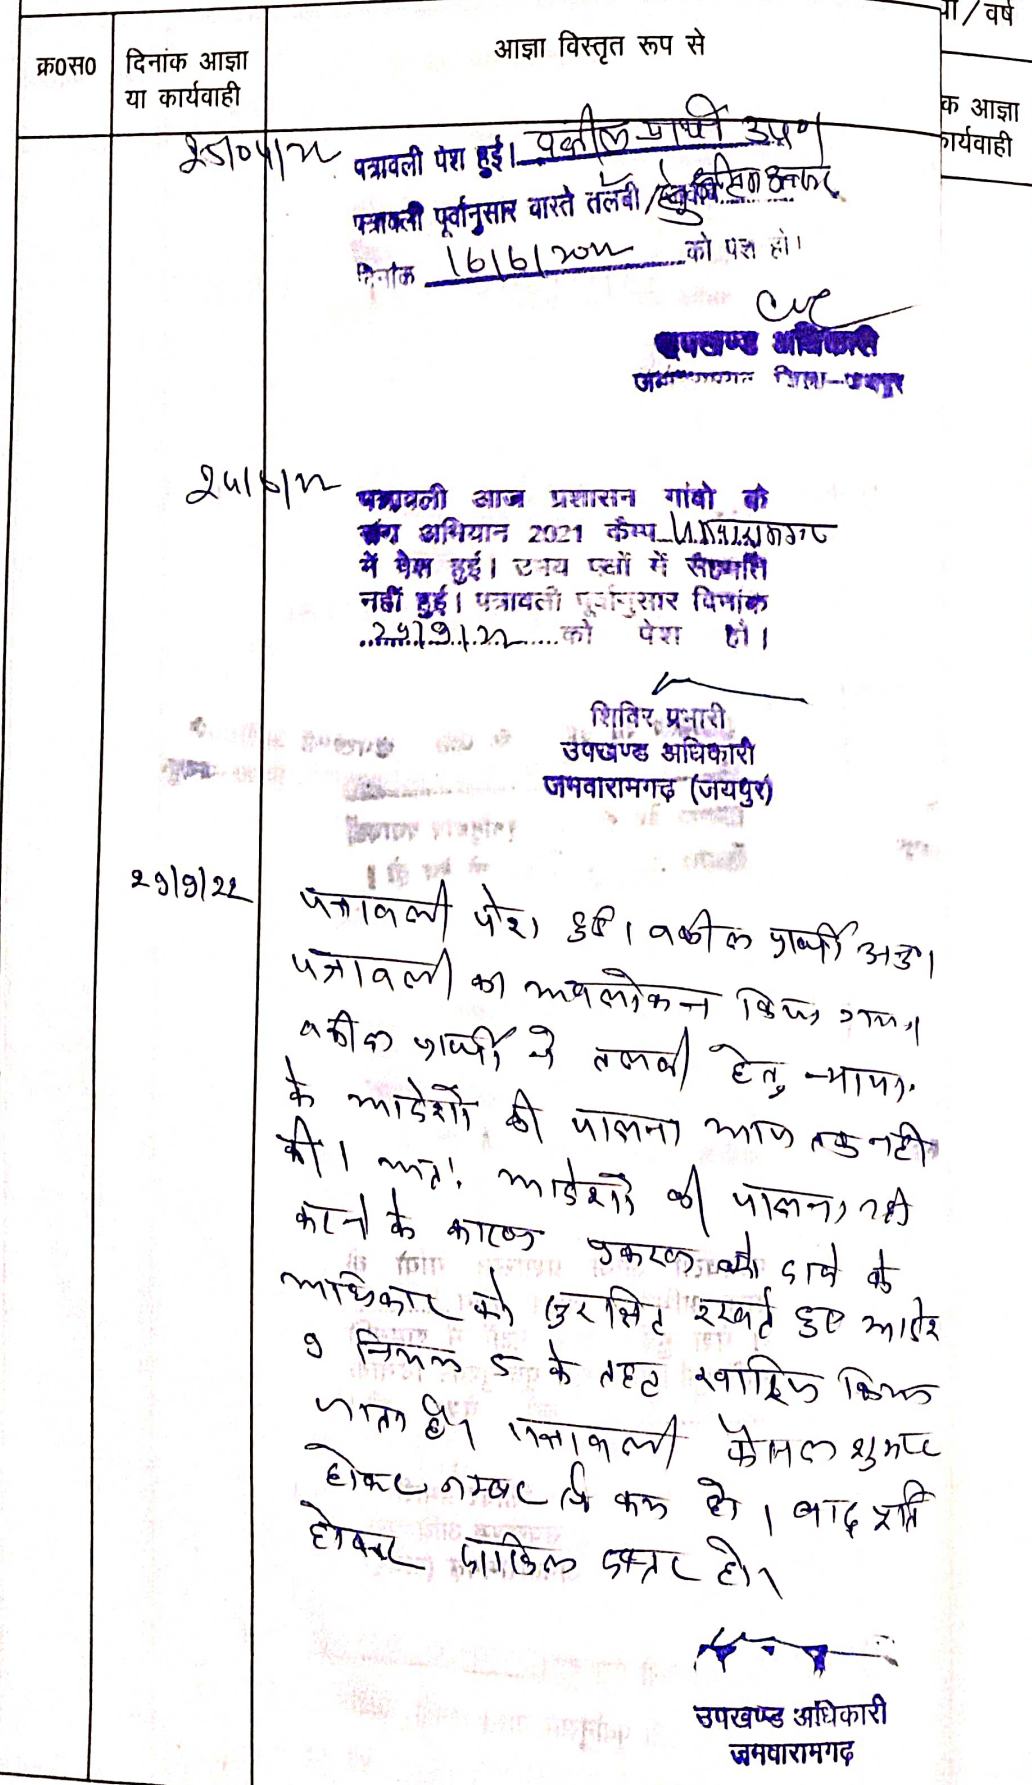 ा / वर्ष
क्र०स०
दिनांक आज्ञा
या कार्यवाही
आज्ञा विस्तृत रूप से
क आज्ञा
कार्यवाही
25/04/22
पत्रावली पेश हुई। वकील प्रार्थी उप०
पत्रावली पूर्वानुसार वास्ते तलबी /
दिनांक 16/6/2022 को पेश हो।
उपखण्ड अधिकारी
24/6/22
पत्रावली आज प्रशासन गांवो के
संग अभियान 2021 कैम्प
में पेश हुई। उभय पक्षों में सहमति
नहीं हुई। पत्रावली पूर्वानुसार दिनांक
29/9/22 को पेश हो।
शिविर प्रभारी
उपखण्ड अधिकारी
जमवारामगढ़ (जयपुर)
29/9/22
पत्रावली पेश हुई। वकील प्रार्थी अनु।
पत्रावली का अवलोकन किया गया।
वकील प्रार्थी ने तलबी हेतु न्याया.
के आदेशों की पालना आज तक नही
की। अतः आदेशों की पालना नही
करने के कारण प्रकरण को दावे के
अधिकार को सुरक्षित रखते हुए आदेश
9 नियम 5 के तहत खारिज किया
जाता है। पत्रावली फैसल शुमार
होकर नम्बर से कम हो। बाद पूर्ति
होकर दाखिल दफ्तर हो।
उपखण्ड अधिकारी
जमवारामगढ़